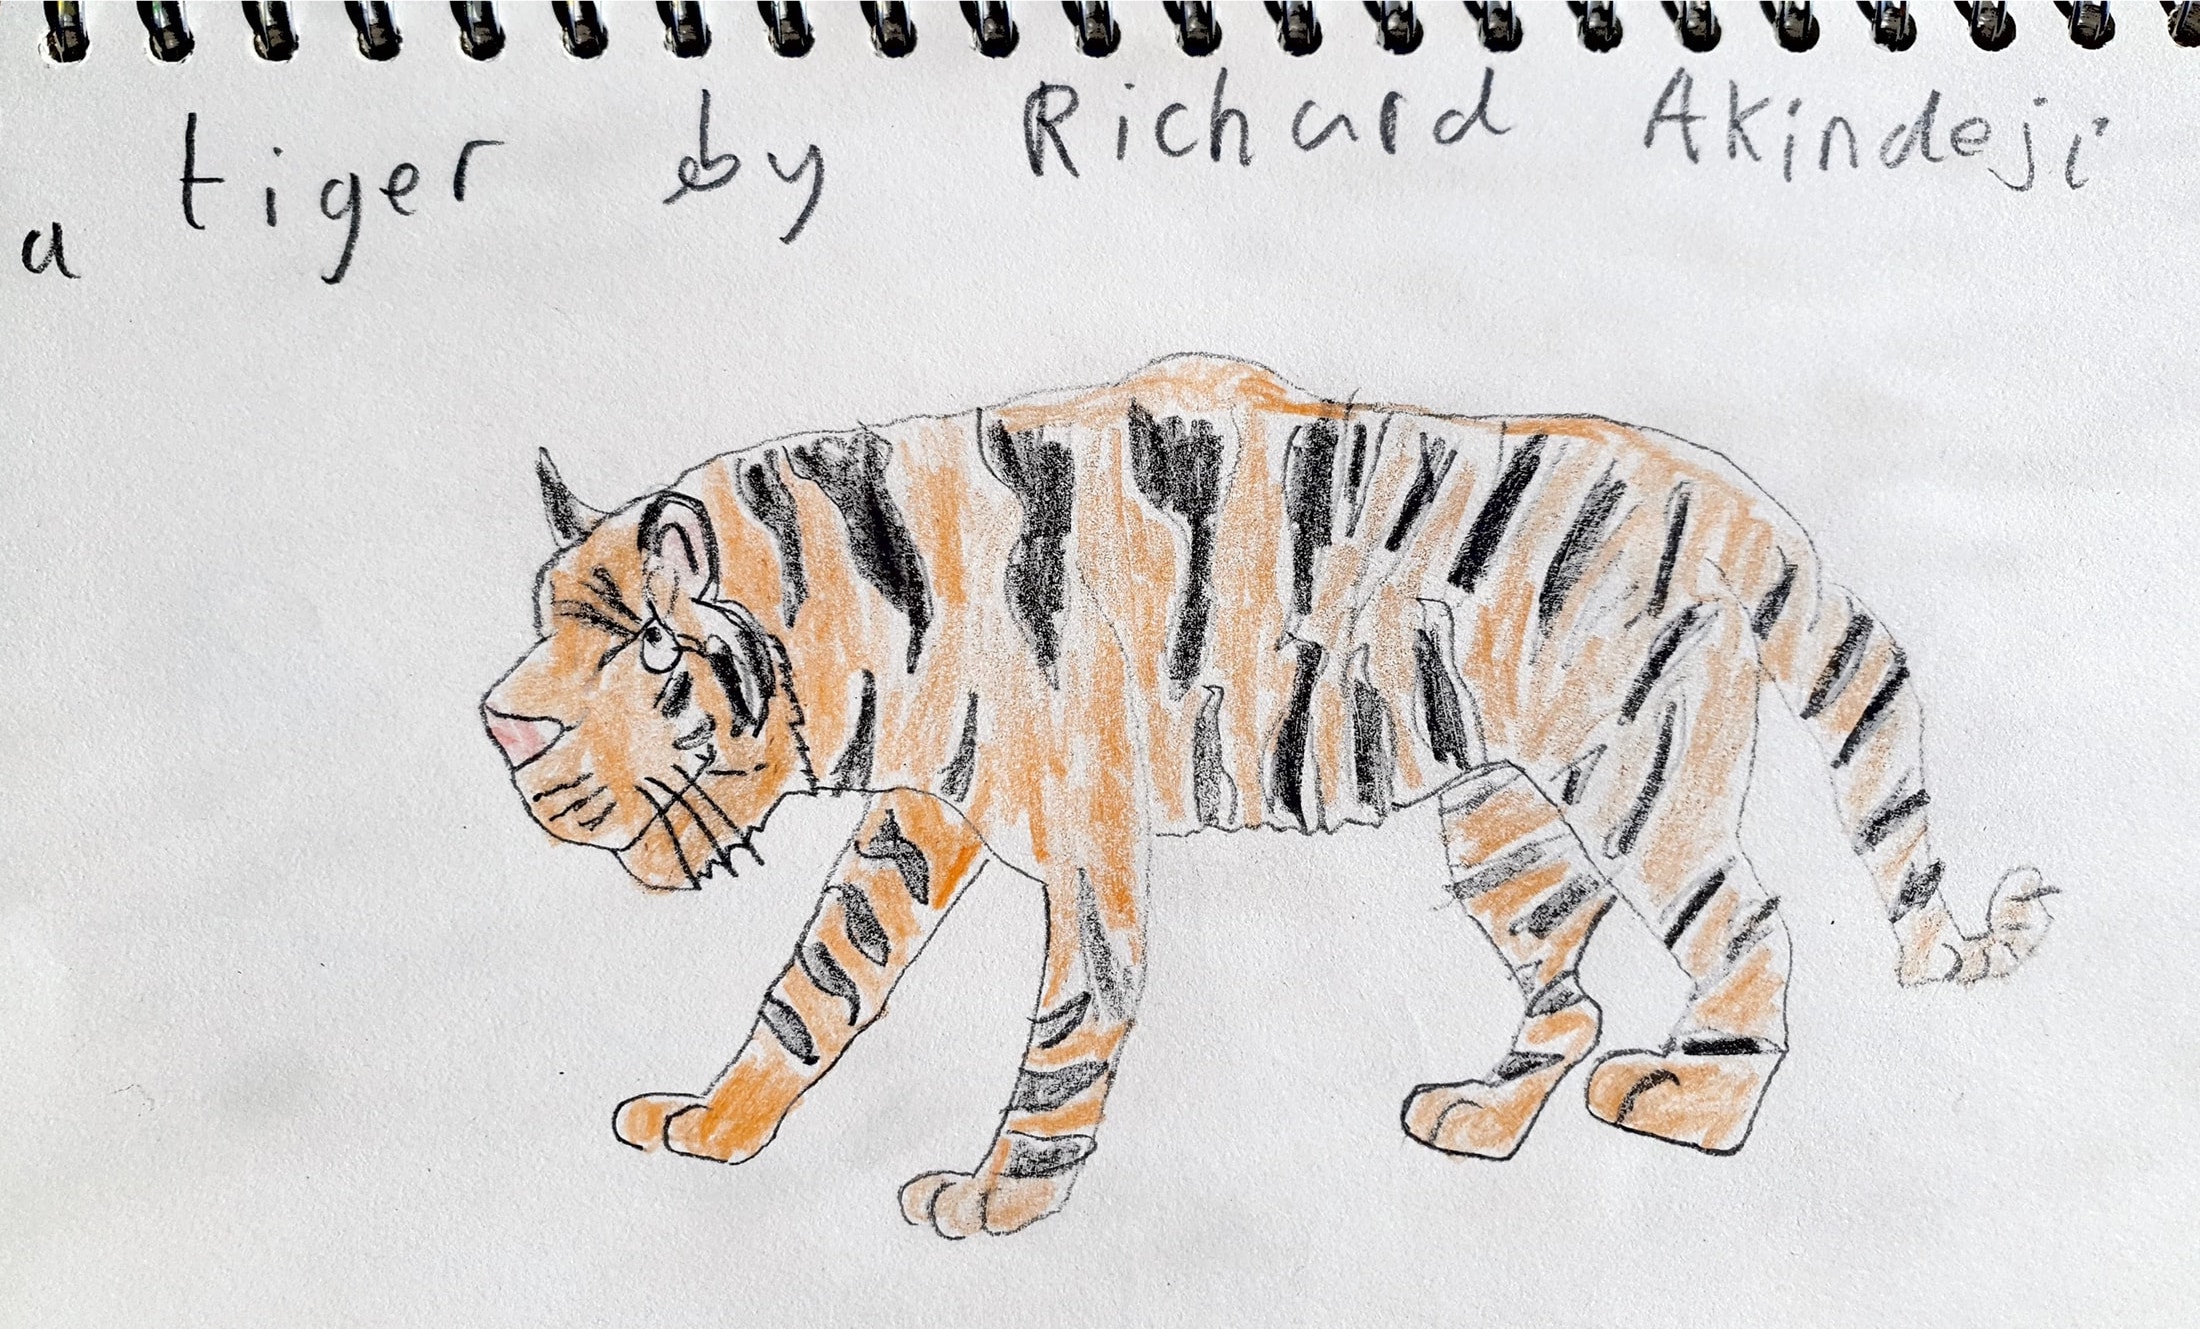 a tiger by Richard Akindeji